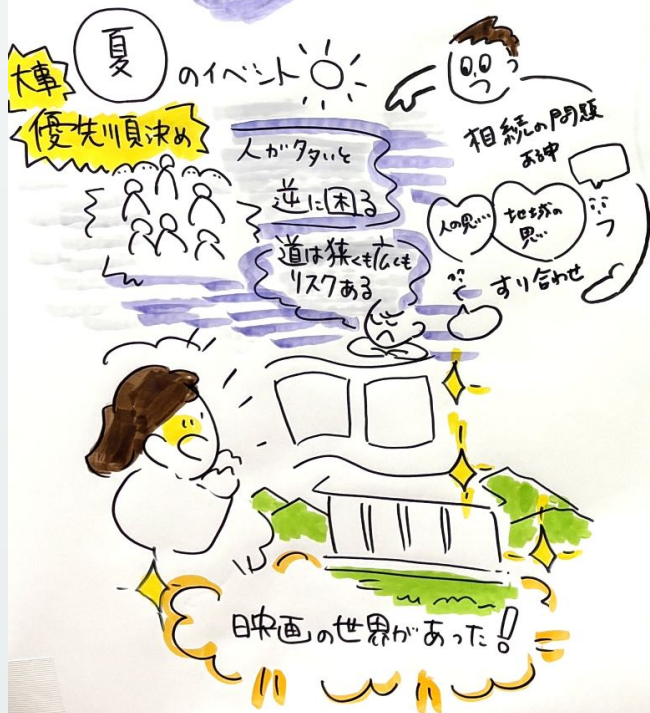 大事
夏のイベント
優先順決め
人が多いと
逆に困る
道は狭くも広くも
リスクある
相続の問題
ある中
人の思い
地域の
思い
すり合わせ
映画の世界があった!